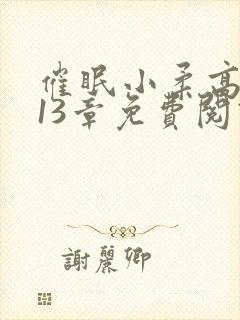 催眠小柔高
13章免費閱
謝麗卿